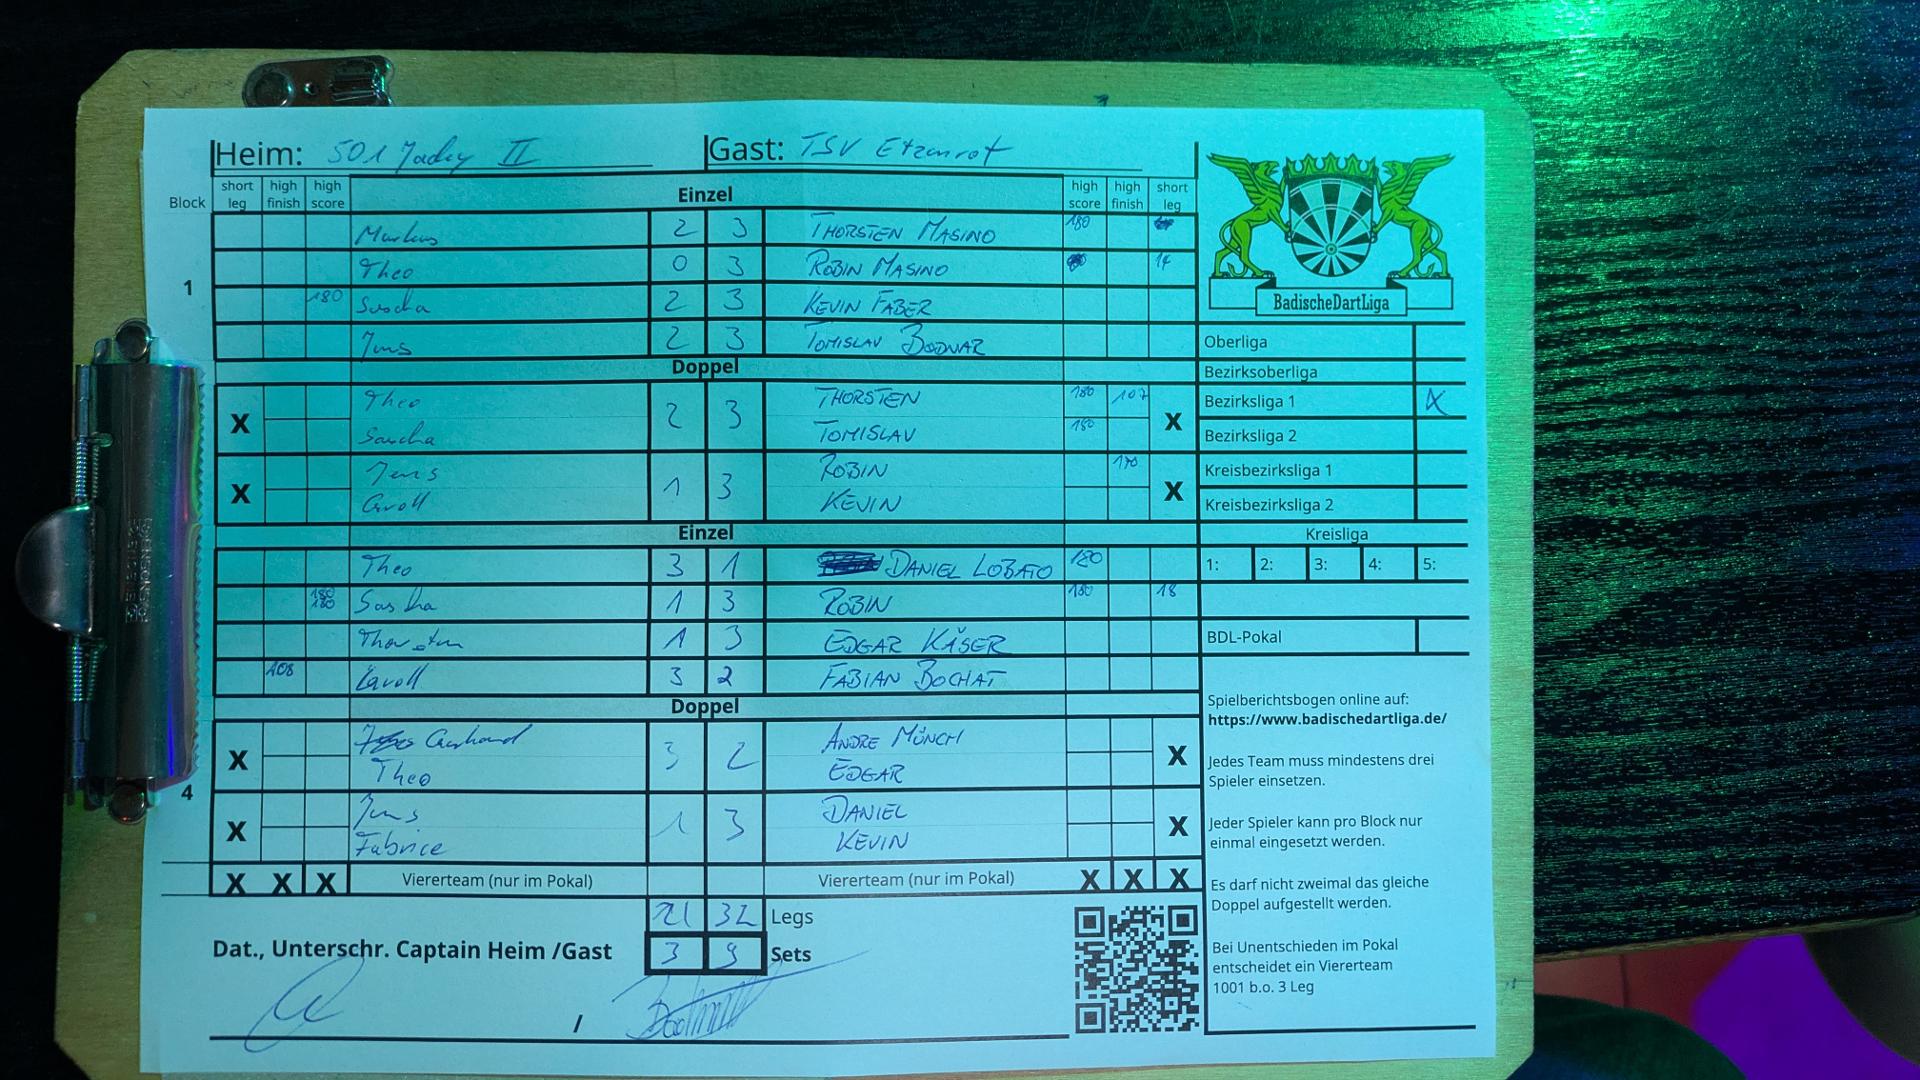 Heim: 501 II Gast: TSV Etzenrot
Block short leg high finish high score Einzel high score high finish short leg
Markus 2 3 THORSTEN MASINO 180
Theo 0 3 ROBIN MASINO 14
1 180 Sascha 2 3 KEVIN FABER
Jens 2 3 TOMISLAV BODNAR
Doppel
X Theo 2 3 THORSTEN 180 107 X
Sascha TOMISLAV 180
X Jens 1 3 ROBIN 170 X
Caroll KEVIN
Einzel
Theo 3 1 DANIEL LOBATO 180
180 180 Sascha 1 3 ROBIN 180 18
Thorsten 1 3 EDGAR KÄSER
108 Caroll 3 2 FABIAN BOCHAT
Doppel
X 3 2 ANDRE MÜNCH X
Theo EDGAR
4
X Jens 1 3 DANIEL X
Fabrice KEVIN
X X X Viererteam (nur im Pokal) Viererteam (nur im Pokal) X X X
21 32 Legs
Dat., Unterschr. Captain Heim /Gast 3 9 Sets
/
BadischeDartLiga
Oberliga
Bezirksoberliga
Bezirksliga 1 X
Bezirksliga 2
Kreisbezirksliga 1
Kreisbezirksliga 2
Kreisliga
1: 2: 3: 4: 5:
BDL-Pokal
Spielberichtsbogen online auf:
https://www.badischedartliga.de/
Jedes Team muss mindestens drei
Spieler einsetzen.
Jeder Spieler kann pro Block nur
einmal eingesetzt werden.
Es darf nicht zweimal das gleiche
Doppel aufgestellt werden.
Bei Unentschieden im Pokal
entscheidet ein Viererteam
1001 b.o. 3 Leg